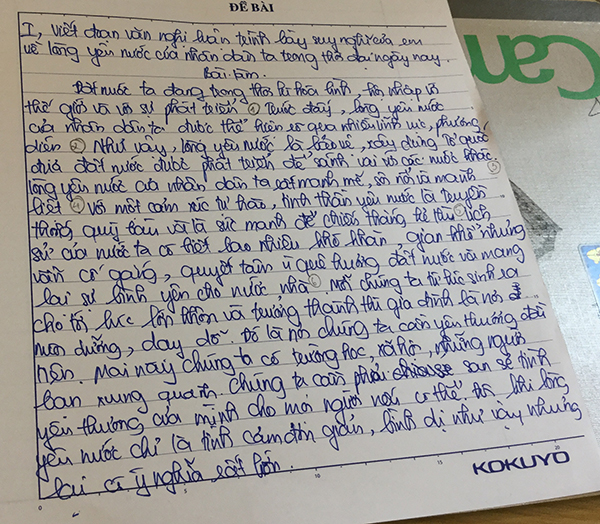 ĐỀ BÀI
I, viết đoạn văn nghị luận trình bày suy nghĩ của em
về lòng yêu nước của nhân dân ta trong thời đại ngày nay.
Bài làm.
Đất nước ta đang trong thời kì hòa bình, hội nhập với
thế giới và với sự phát triển ① Trước đây, lòng yêu nước
của nhân dân ta được thể hiện rõ qua nhiều lĩnh vực, phương
diện ② Như vậy, lòng yêu nước là bảo vệ, xây dựng Tổ quốc
đưa đất nước được phát triển để sánh vai với các nước khác ③
lòng yêu nước của nhân dân ta rất mạnh mẽ, sôi nổi và mãnh
liệt ④ với một cảm xúc tự hào, tinh thần yêu nước là truyền
thống quý báu và là sức mạnh để chiến thắng kẻ thù lịch
sử của nước ta có biết bao nhiêu khó khăn, gian khổ nhưng
vẫn cố gắng, quyết tâm vì quê hương đất nước và mang
lại sự bình yên cho nước, nhà mỗi chúng ta từ lúc sinh ra
cho tới lúc lớn khôn và trưởng thành thì gia đình là nơi
nuôi dưỡng, dạy dỗ. Đó là nơi chúng ta cần yêu thương đầu
tiên. Mai này chúng ta có trường học, xã hội, những người
bạn xung quanh. Chúng ta cần phải san sẻ tình
yêu thương của mình cho mọi người nơi có thể. đôi khi lòng
yêu nước chỉ là tình cảm đơn giản, bình dị như vậy nhưng
lại có ý nghĩa rất lớn.
KOKUYO
Can